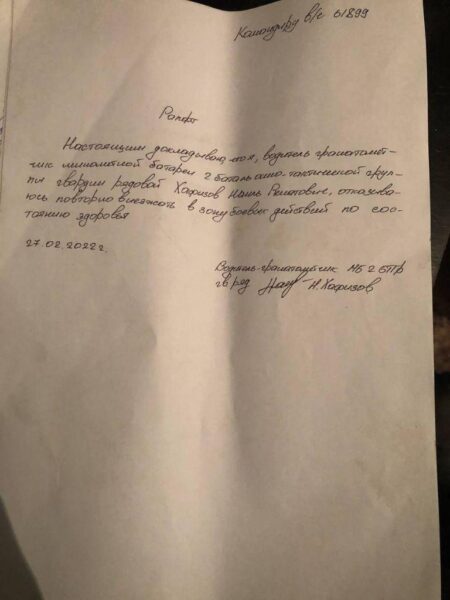 Командиру в/ч 61899
Рапорт
Настоящим докладываю, что я, водитель гранатомёт-
чик миномётной батареи 2 батальонно-тактической груп-
пы гвардии рядовой Хафизов Наиль Решатович, отказыва-
юсь повторно выезжать в зону боевых действий по сос-
тоянию здоровья
27.02.2022г.
Водитель-гранатомётчик МБ 2 БТГр
гв. ряд Н. Хафизов